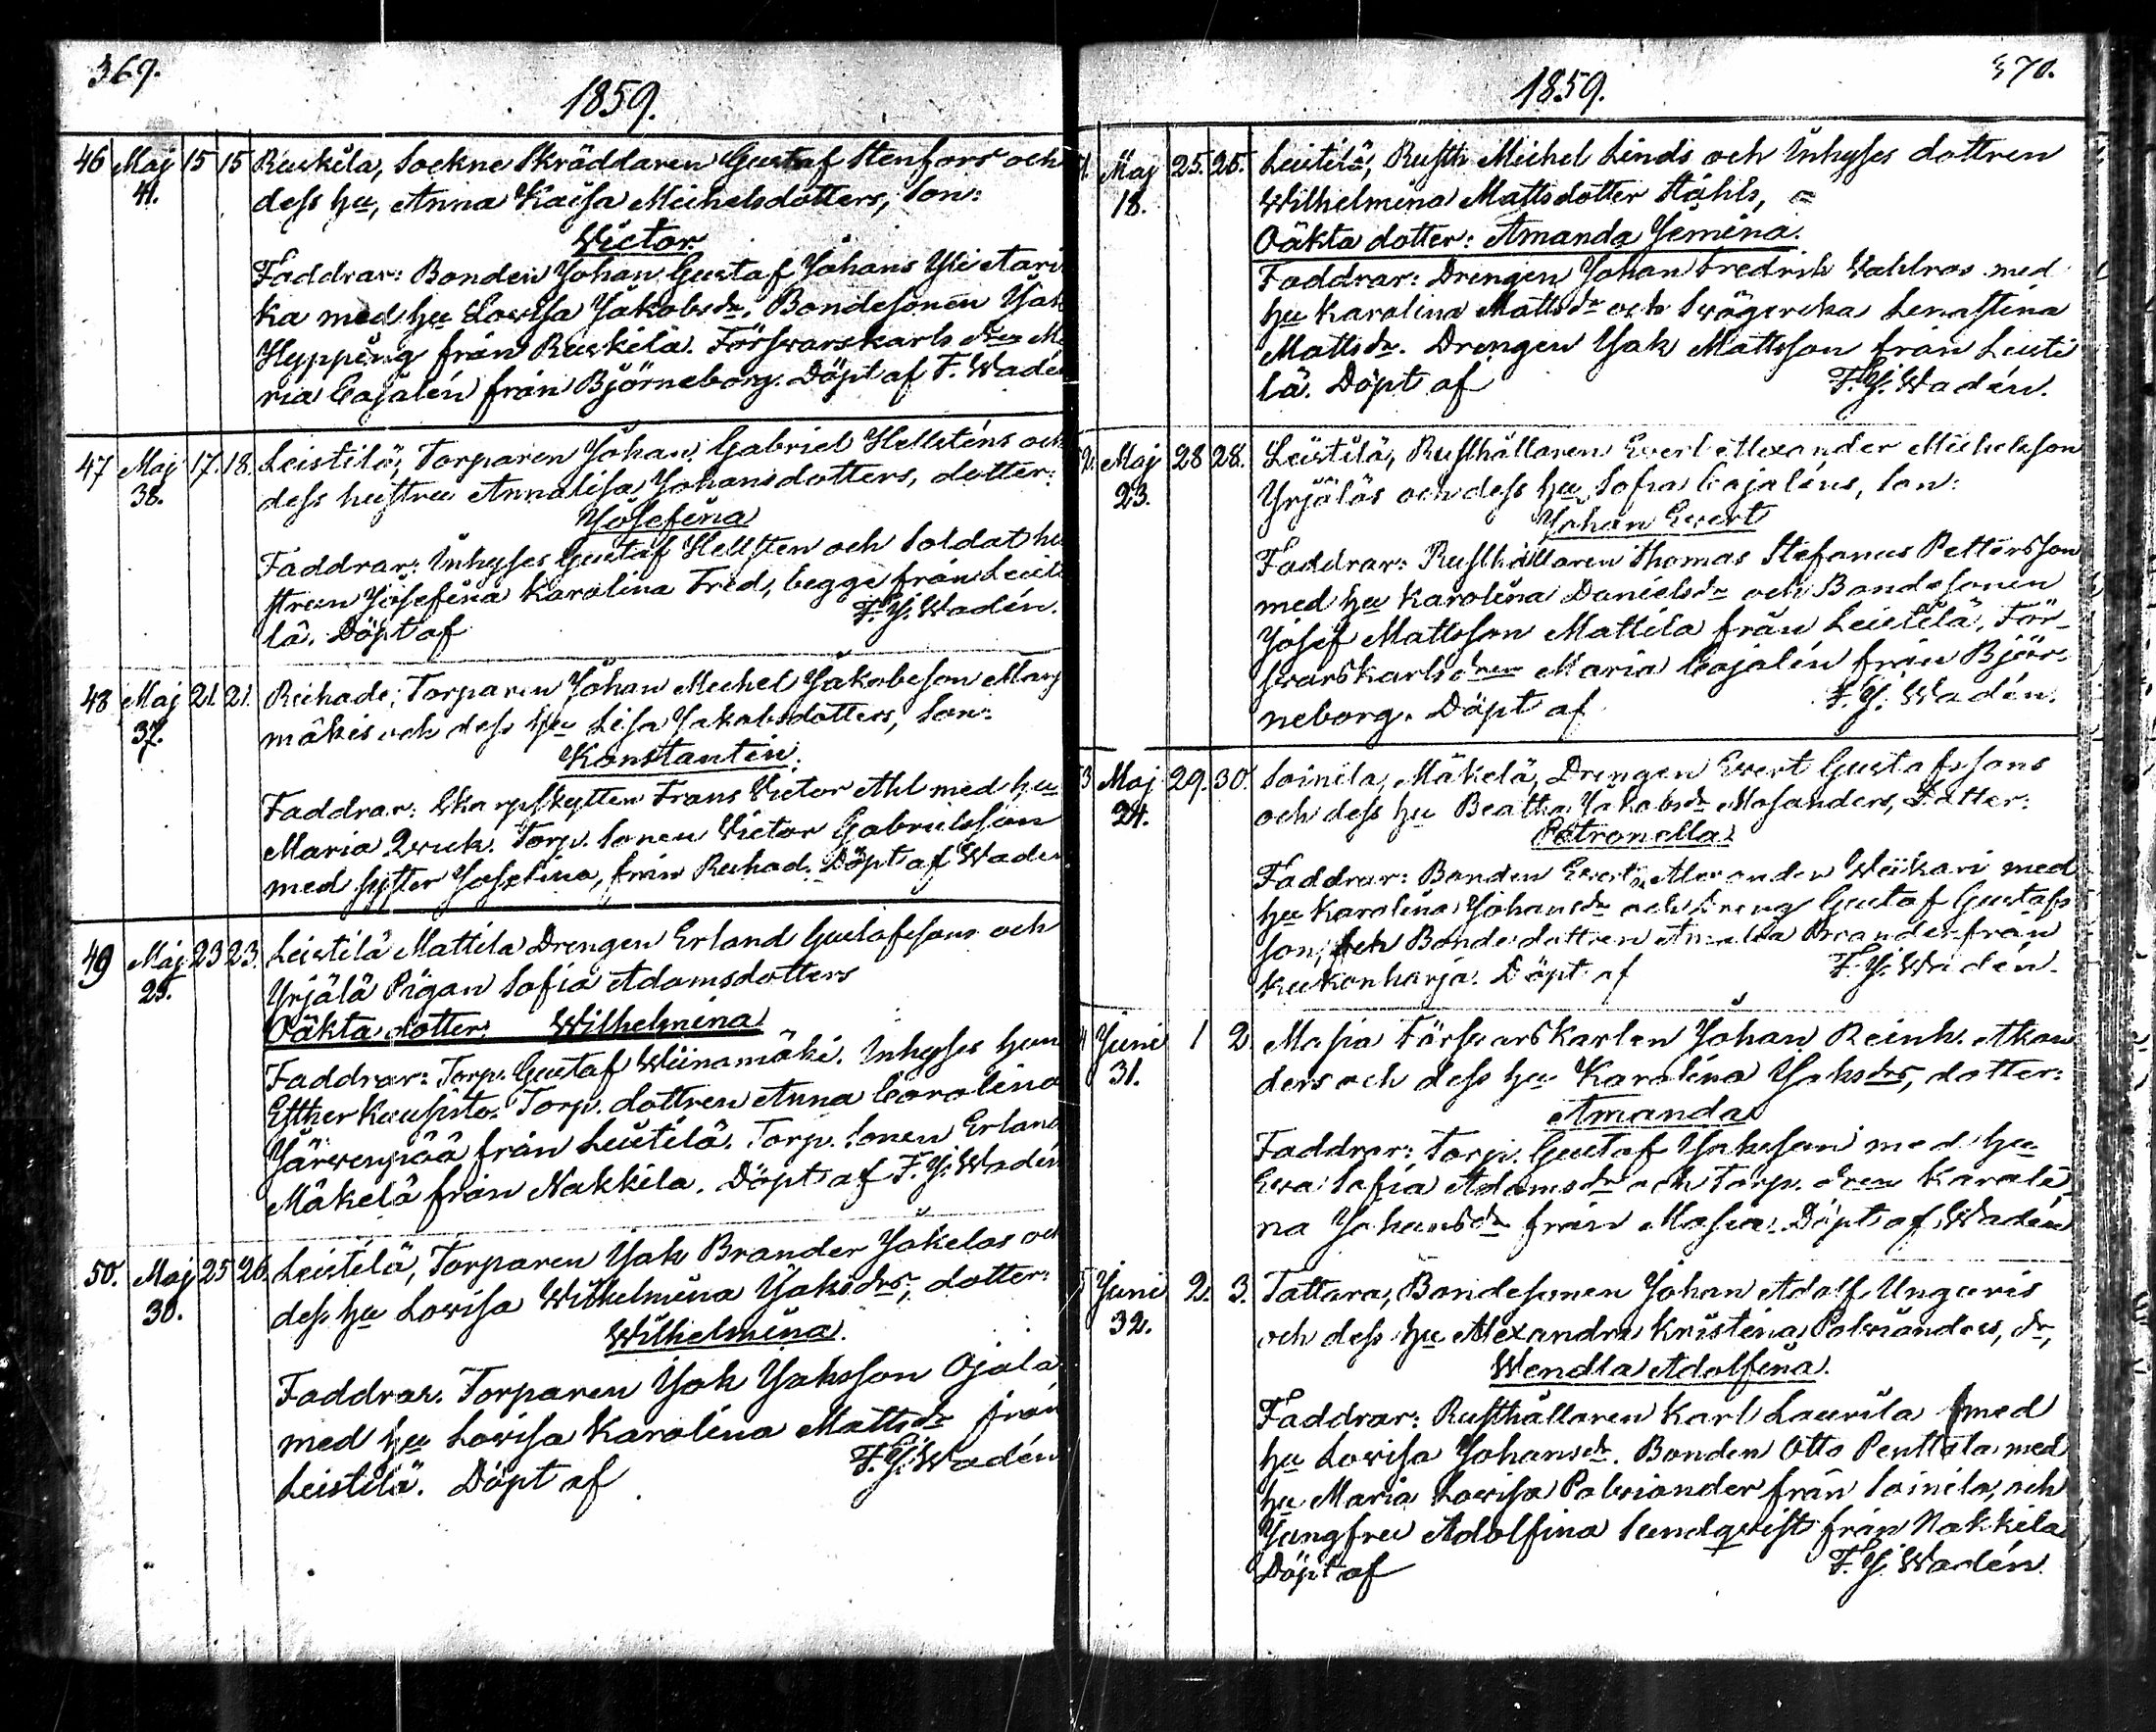 369.
1859.
46 Maj 15 15 Ruskila, Sockne Skräddaren Gustaf Stenfors och
41. dess hu, Anna Kaisa Michelsdotters, Son:
Victor.
Faddrar: Bonden Johan Gustaf Johans Yli
ka med hu Lovisa Jakobsdr. Bondesonen Jak
Hyppäng från Ruskila. Försvarskarls dren Ma
ria Cajalén från Björneborg. Döpt af F. Wadén
47 Maj 17. 18. Leistilä, Torparen Johan Gabriel Hellsténs och
38. dess hustru Annalisa Johansdotters, dotter:
Josefina
Faddrar: Inhyses Gustaf Hellsten och Soldat hu
strun Josefina Karolina Fred, begge från Leisti
lä. Döpt af F. J. Wadén.
48 Maj 21. 21. Ruhade, Torparen Johan Michel Jakobsson Mary
37. mäkis och dess hu Lisa Jakobsdotters, Son:
Konstantin.
Faddrar: Skarpskytten Frans Victor Ahl med hu
Maria Qvick. Torp. Sonen Victor Gabrielsson
med syster Josefina, från Ruhad. Döpt af Wadén
49 Maj 23 23. Leistilä Mattila Drengen Erland Gustafssons och
25. Yrjälä Pigan Sofia Adamsdotters
Oäkta dotter: Wilhelmina
Faddrar: Torp. Gustaf Wiinamäki. Inhyses hun
Esther Kaupito. Torp. dottren Anna Carolina
Järvenpää från Leistilä. Torp. Sonen Erland
Mäkelä från Nakkila. Döpt af F. J. Wadén
50. Maj 25 26. Leistilä, Torparen Jak Brander Jokelas och
30. dess hu Lovisa Wilhelmina Jaksdrs, dotter:
Wilhelmina.
Faddrar. Torparen Jak Jaksson Ojala
med hu Lovisa Karolina Mattsdr från
Leistilä. Döpt af F. J. Wadén
370.
1859.
1. Maj 25. 25. Leistilä, Rusth Michel Linds och Inhyses dottren
18. Wilhelmina Mattsdotter Ståhls,
Oäkta dotter: Amanda Jemina.
Faddrar: Drengen Johan Fredrik Wahlros med
hu Karolina Mattsdr och Svägerska Lenastina
Mattsdr. Drengen Jak Mattsson från Leisti
lä. Döpt af F. J. Wadén.
2. Maj 28 28. Leistilä, Rusthållaren Evert Alexander Michelsson
23. Yrjäläs och dess hu Sofia Cajaléns, Son:
Johan Evert
Faddrar: Rusthållaren Thomas Stefanus Pettersson
med hu Karolina Danielsdr och Bondesonen
Josef Mattsson Mattila från Leistilä, För-
svarskarls dren Maria Cajalén från Björ-
neborg. Döpt af F. J. Wadén.
3 Maj 29. 30. Soinila, Mäkelä, Drengen Evert Gustafssons
24. och dess hu Beatha Jakobsdr Masanders, Dotter:
Petronella
Faddrar: Bonden Evert Alexander Wiikari med
hu Karolina Johansdr och Dreng Gustaf Gustafs
son, och Bondedottren Amalia Brander från
Kukonharja. Döpt af F. J. Wadén.
4 Juni 1 2. Masia Försvarskarlen Johan Reinh.
31. ders och dess hu Karolina Jaksdrs, dotter:
Amanda
Faddrar: Torp. Gustaf Jaksson med hu
Eva Sofia Adamsdr och Torp. dren Karoli
na Johansdr från Masia. Döpt af Wadén
5 Juni 2. 3. Tattara, Bondesonen Johan Adolf Unguris
32. och dess hu Alexandra Kristina Palvianders, dr,
Wendla Adolfina.
Faddrar: Rusthållaren Karl Laurila med
hu Lovisa Johansdr. Bonden Otto Penttala med
hu Maria Lovisa Palviander från Soinila, och
Jungfru Adolfina Sundqvist från Nakkila
Döpt af F. J. Wadén.